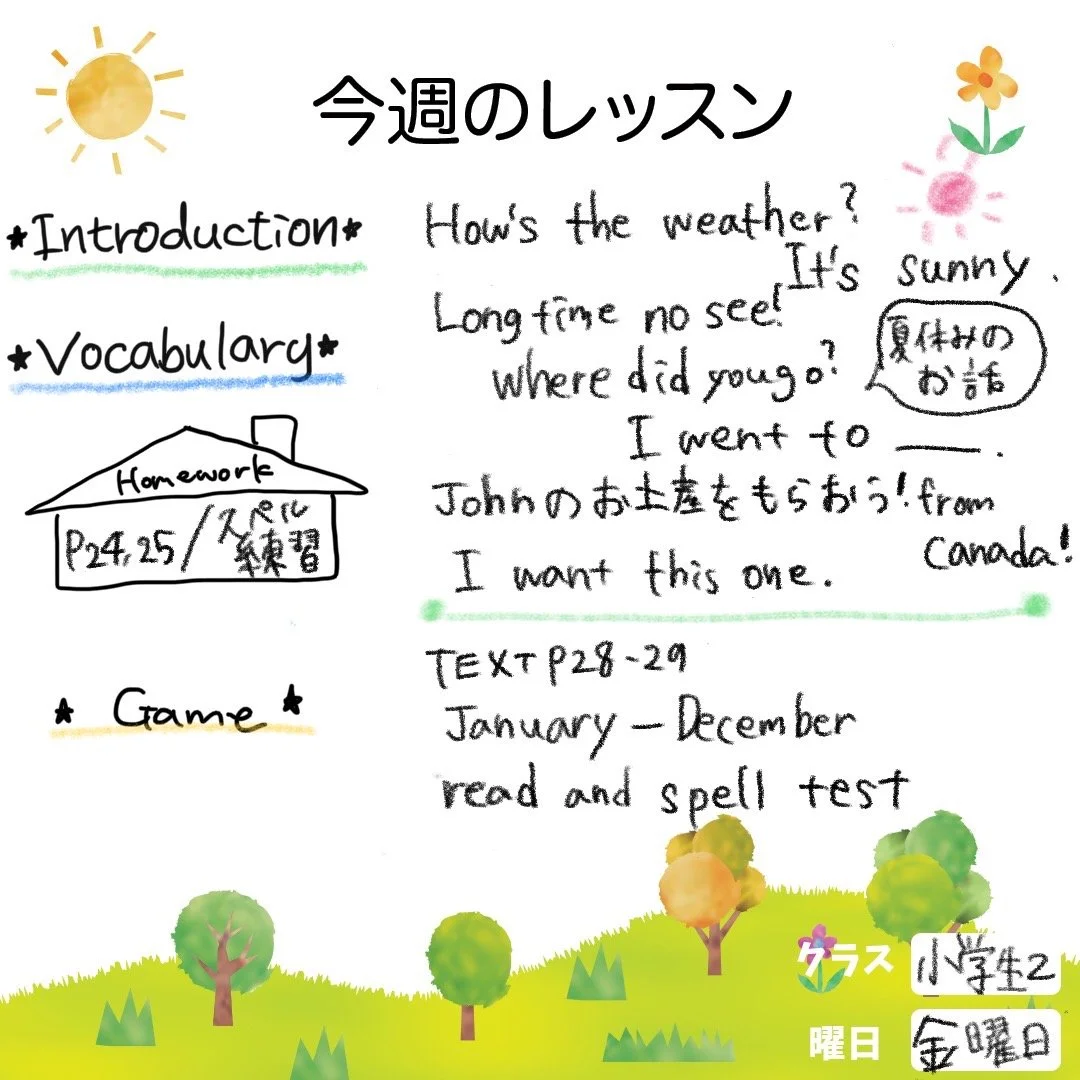 今週のレッスン
★Introduction★
How's the weather?
It's sunny.
Long time no see!
★Vocabulary★
where did you go?
夏休みの
お話
I went to ___.
Homework
P24,25/スペル
練習
Johnのお土産をもらおう! from
Canada!
I want this one.
TEXT P28-29
★ Game ★
January — December
read and spell test
クラス 小学生2
曜日 金曜日